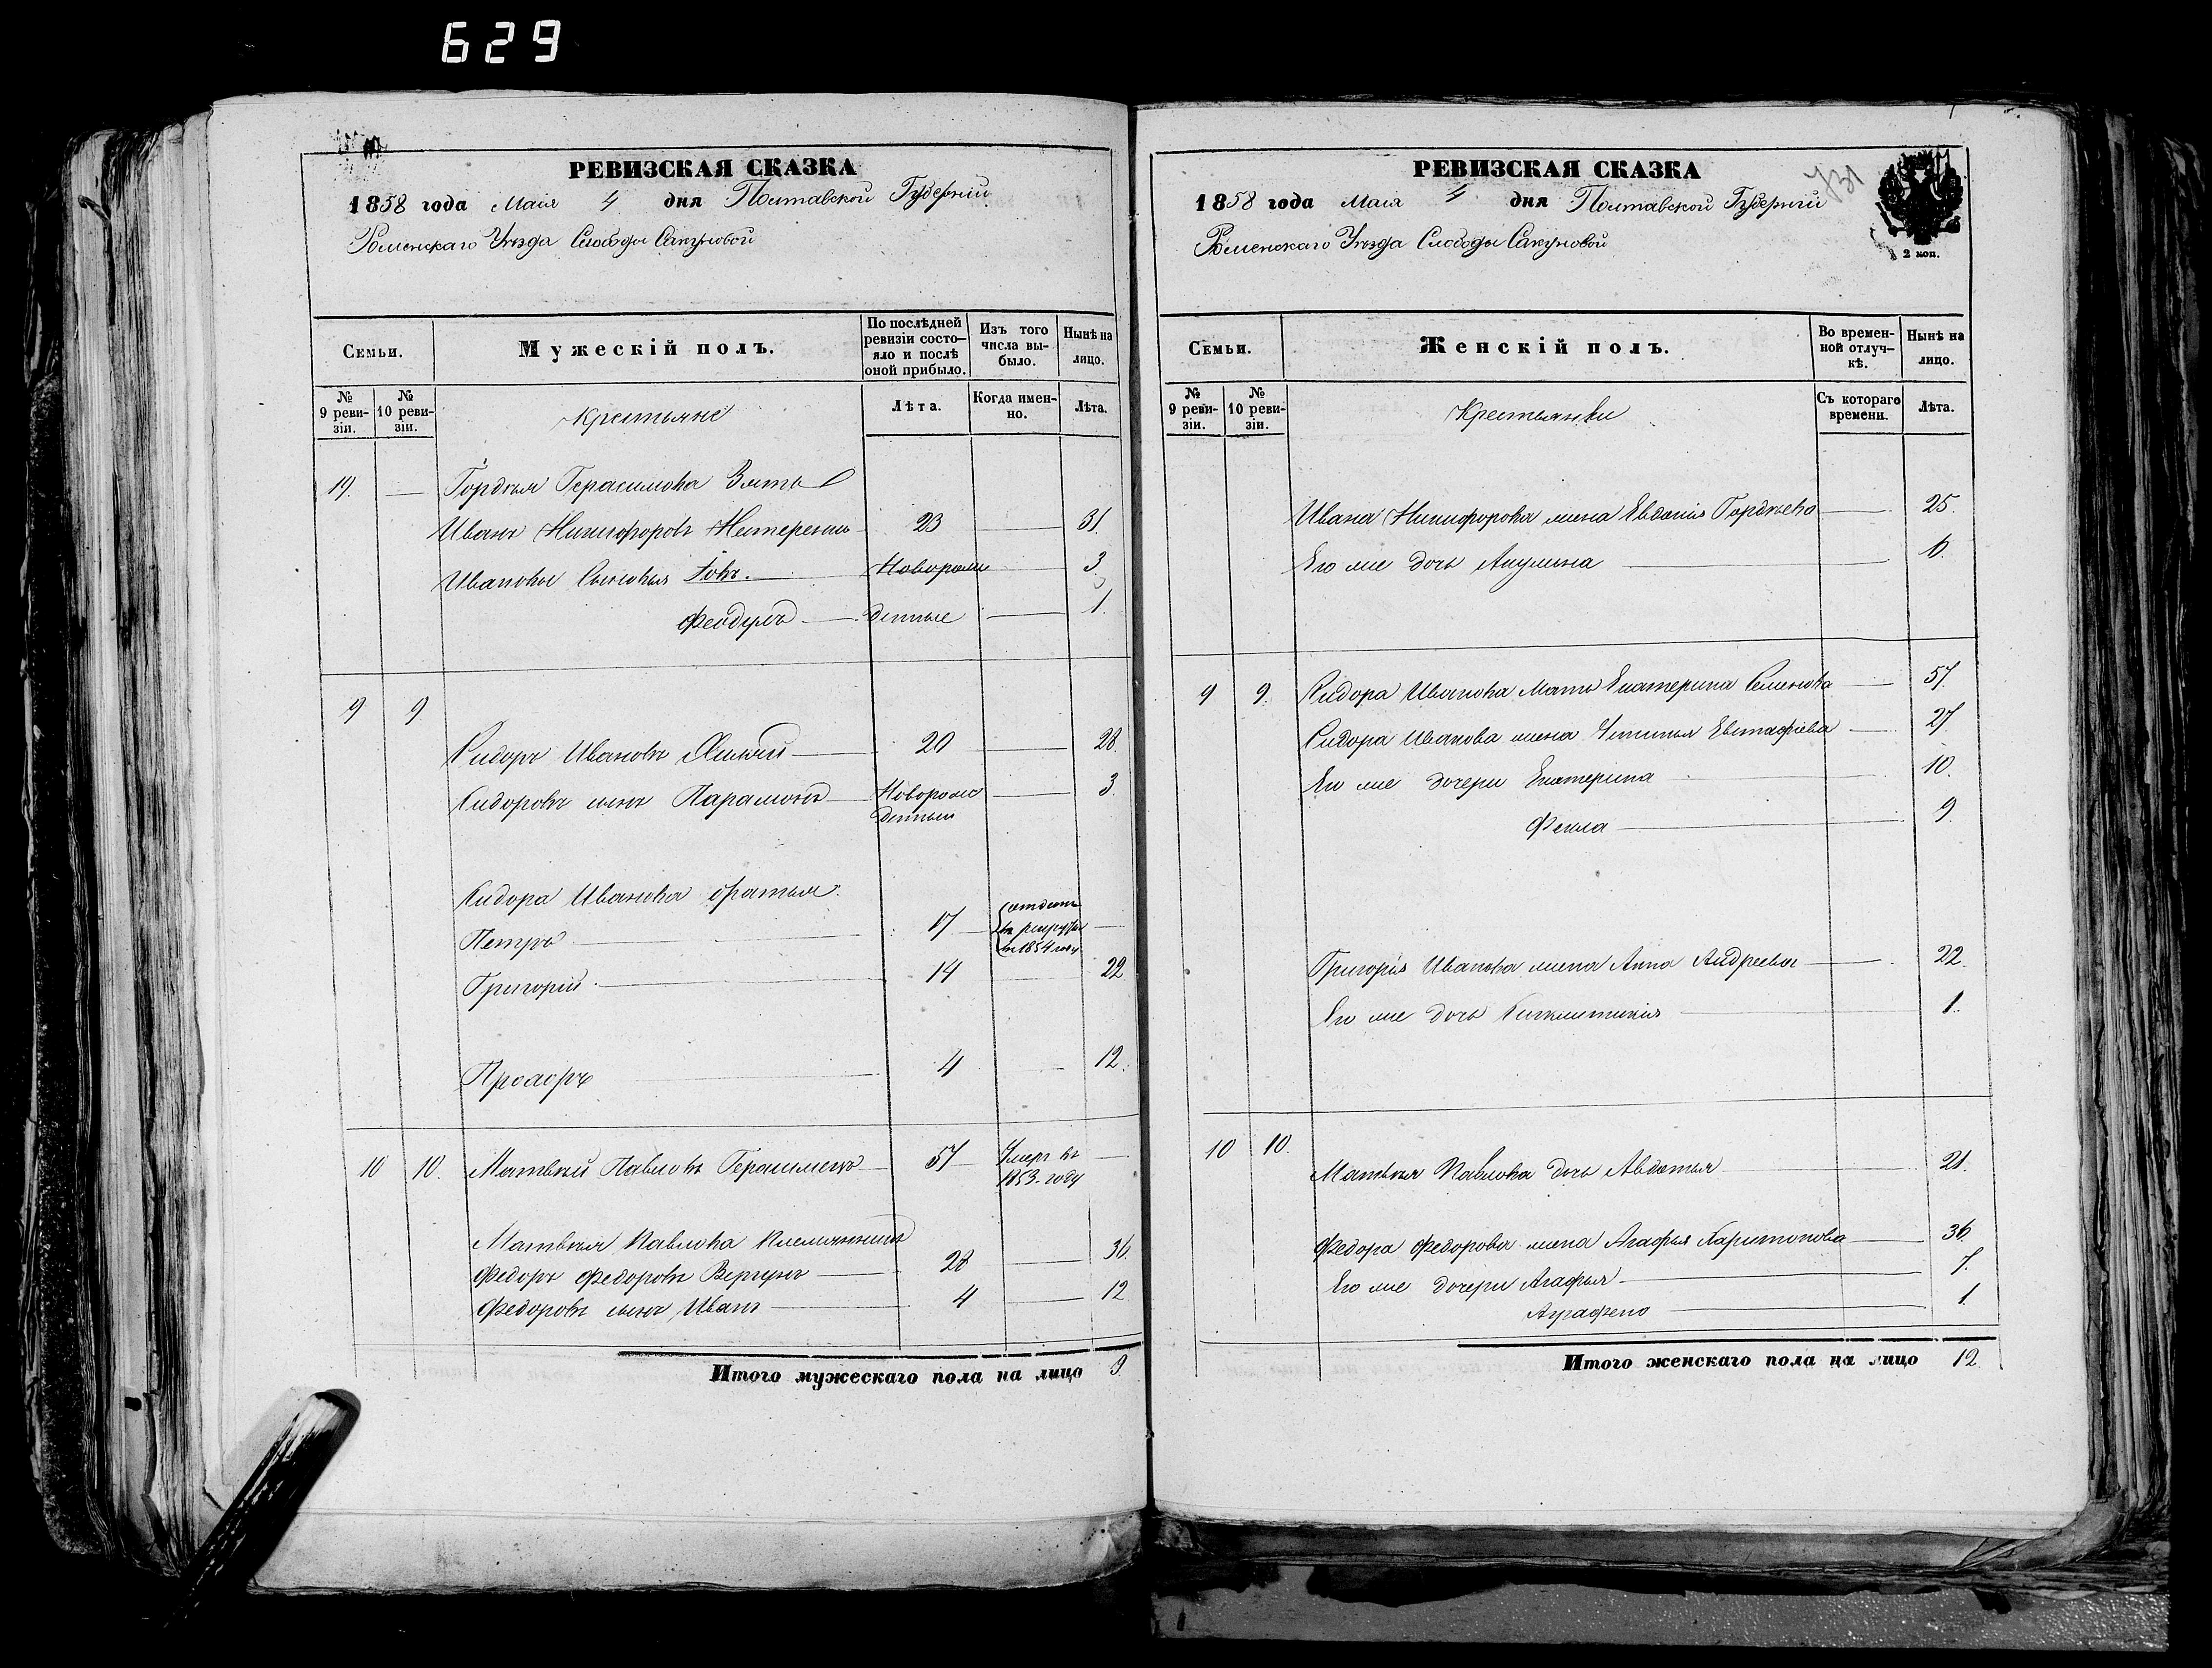 629
РЕВИЗСКАЯ СКАЗКА
1858 года Маія 4 дня Полтавской Губерніи
Роменскаго Уѣзда Слободы Сакуновой
Семьи.
Мужескій полъ.
По послѣдней ревизіи состояло и послѣ оной прибыло.
Изъ того числа выбыло.
Нынѣ на лицо.
№ 9 ревизіи.
№ 10 ревизіи.
Крестьяне
Лѣта.
Когда именно.
Лѣта.
19. — Гордѣя Герасимова Зять
Иванъ Никифоровъ Нестеренко 23 — 31.
Ивановы Сыновья Іовъ. Новорож 3
Феодулъ — денные — 1.
9 9
Сидоръ Ивановъ — 20 — 28.
Сидоровъ сынъ Парамонъ — Новорож — 3
денный
Сидора Иванова братья:
Петръ — 17 — отданъ въ рекруты въ 1854 году —
Григорій — 14 — 22
Прохоръ — 4 — 12.
10 10. Матвѣй Павловъ Герасименко 57 Умеръ въ 1853 году —
Матвѣя Павлова племянникъ
Федоръ Федоровъ Вергунъ — 28 — 36.
Федоровъ сынъ Иванъ — 4 — 12
Итого мужескаго пола на лицо 9.
РЕВИЗСКАЯ СКАЗКА
731
1858 года Маія 4 дня Полтавской Губерніи
Роменскаго Уѣзда Слободы Сакуновой
2 коп.
Семьи.
Женскій полъ.
Во временной отлучкѣ.
Нынѣ на лицо.
№ 9 ревизіи.
№ 10 ревизіи.
Крестьянки
Съ котораго времени.
Лѣта.
Ивана Никифорова жена Евдокія Гордѣева — 25.
Его же дочь Акулина — 6.
9 9. Сидора Иванова Мать Екатерина Семенова — 57.
Сидора Иванова жена Евстафіева — 27
Его же дочери Екатерина — 10.
Фекла — 9.
Григорія Иванова жена Анна Андреева — 22.
Его же дочь — 1.
10 10.
Матвѣя Павлова дочь Авдотья — 21.
Федора Федорова жена Агафья Харитонова — 36.
Его же дочери Агафья — 7.
Аграфена — 1.
Итого женскаго пола на лицо 12.